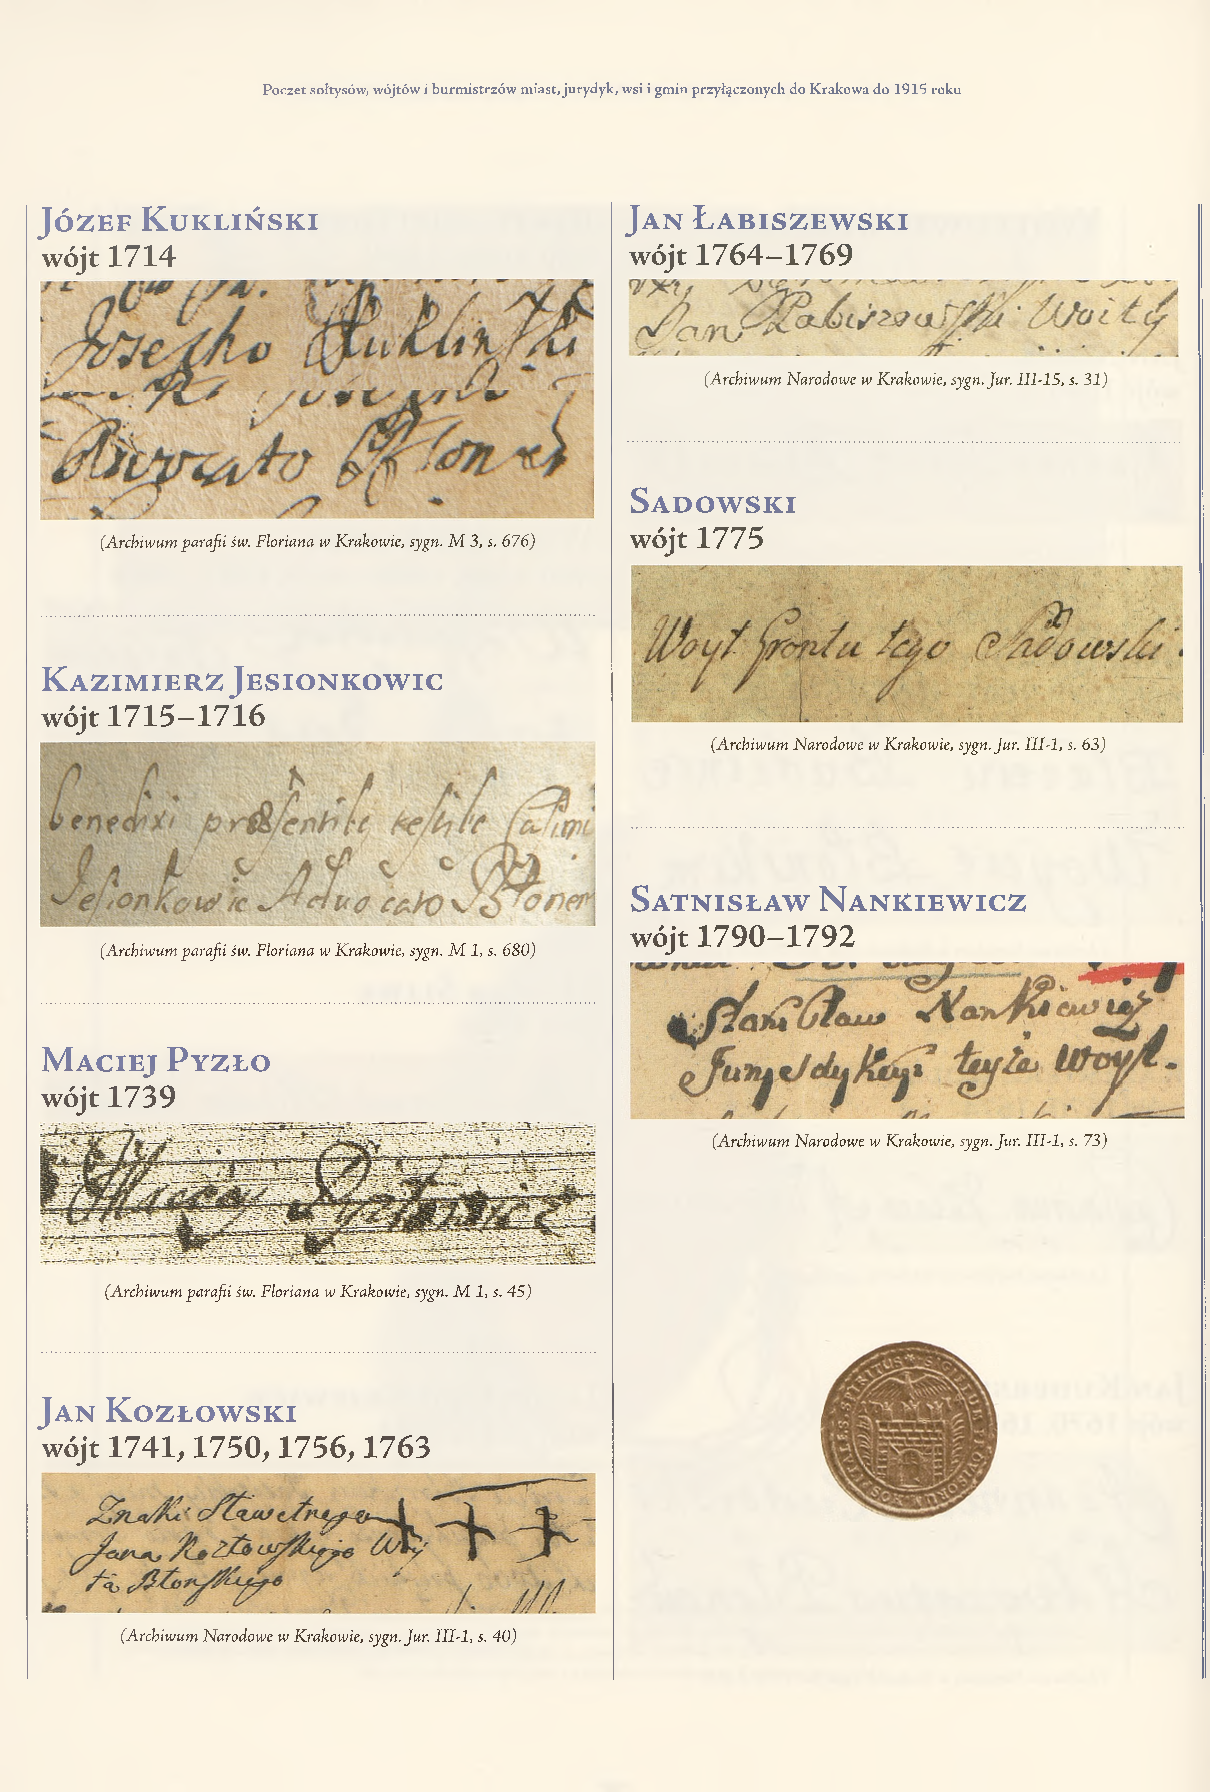 Poczet sołtysów, wójtów i burmistrzów miast, jurydyk, wsi i gmin przyłączonych do Krakowa do 1915 roku
Józef Kukliński
wójt 1714
Josepho Kukliński
(Archiwum parafii św. Floriana w Krakowie, sygn. M 3, s. 676)
Kazimierz Jesionkowic
wójt 1715–1716
benedixi
Jesionkowic Aduocato Błonen
(Archiwum parafii św. Floriana w Krakowie, sygn. M 1, s. 680)
Maciej Pyzło
wójt 1739
(Archiwum parafii św. Floriana w Krakowie, sygn. M 1, s. 45)
Jan Kozłowski
wójt 1741, 1750, 1756, 1763
Znaki Sławetnego
Jana Kozłowskiego Wóy
ta Błonskiego
(Archiwum Narodowe w Krakowie, sygn. Jur. III-1, s. 40)
Jan Łabiszewski
wójt 1764–1769
Jan Łabiszowski Woitÿ
(Archiwum Narodowe w Krakowie, sygn. Jur. III-15, s. 31)
Sadowski
wójt 1775
Woyt Grontu tego Sadowski.
(Archiwum Narodowe w Krakowie, sygn. Jur. III-1, s. 63)
Satnisław Nankiewicz
wójt 1790–1792
Stanisław Nankiewicz
teyże Woyt.
(Archiwum Narodowe w Krakowie, sygn. Jur. III-1, s. 73)